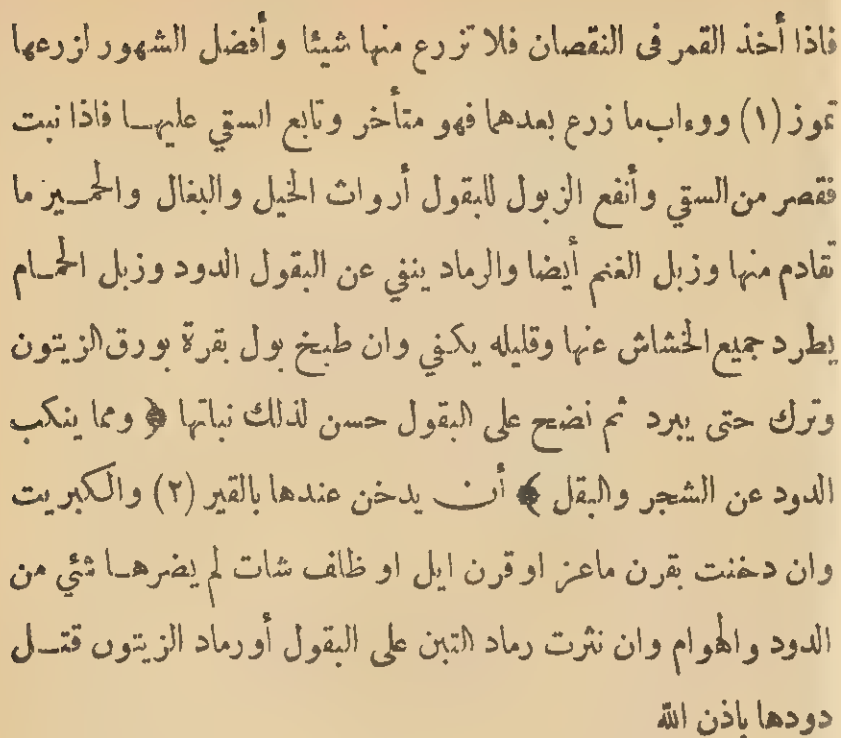 فاذا أخذ القمر فى النقصان فلا تزرع منها شيئا وأفضل الشهور لزرعها
تموز (١) ووءاب ما زرع بعدهما فهو متأخر وتابع السقي عليهـا فاذا نبت
فقصر من السقي وأنفع الزبول للبقول أرواث الخيل والبغال والحمـير ما
تقادم منها وزبل الغنم أيضا والرماد ينفي عن البقول الدود وزبل الحمـام
يطرد جميع الخشاش عنها وقليله يكفي وان طبخ بول بقرة بورق الزيتون
وترك حتى يبرد ثم نضح على البقول حسن لذلك نباتها ﴿ ومما ينكب
الدود عن الشجر والبقل ﴾ أن يدخن عندها بالقير (٢) والكبريت
وان دخنت بقرن ماعز او قرن ايل او ظلف شات لم يضرهـا شئ من
الدود والهوام وان نثرت رماد التبن على البقول أو رماد الزيتون قتـل
دودها باذن الله